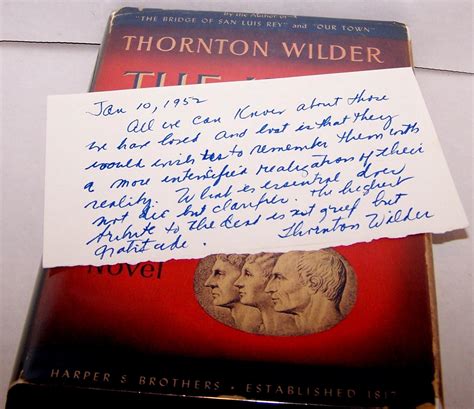 by the Author of
"THE BRIDGE OF SAN LUIS REY" and "OUR TOWN"
THORNTON WILDER
THE
Jan 10, 1952
All we can know about those
we have loved and lost is that they
would wish us to remember them with
a more intensified realization of their
reality. What is essential does
not die but clarifies. The highest
tribute to the dead is not grief but
gratitude. Thornton Wilder
Novel
HARPER & BROTHERS • ESTABLISHED 1817